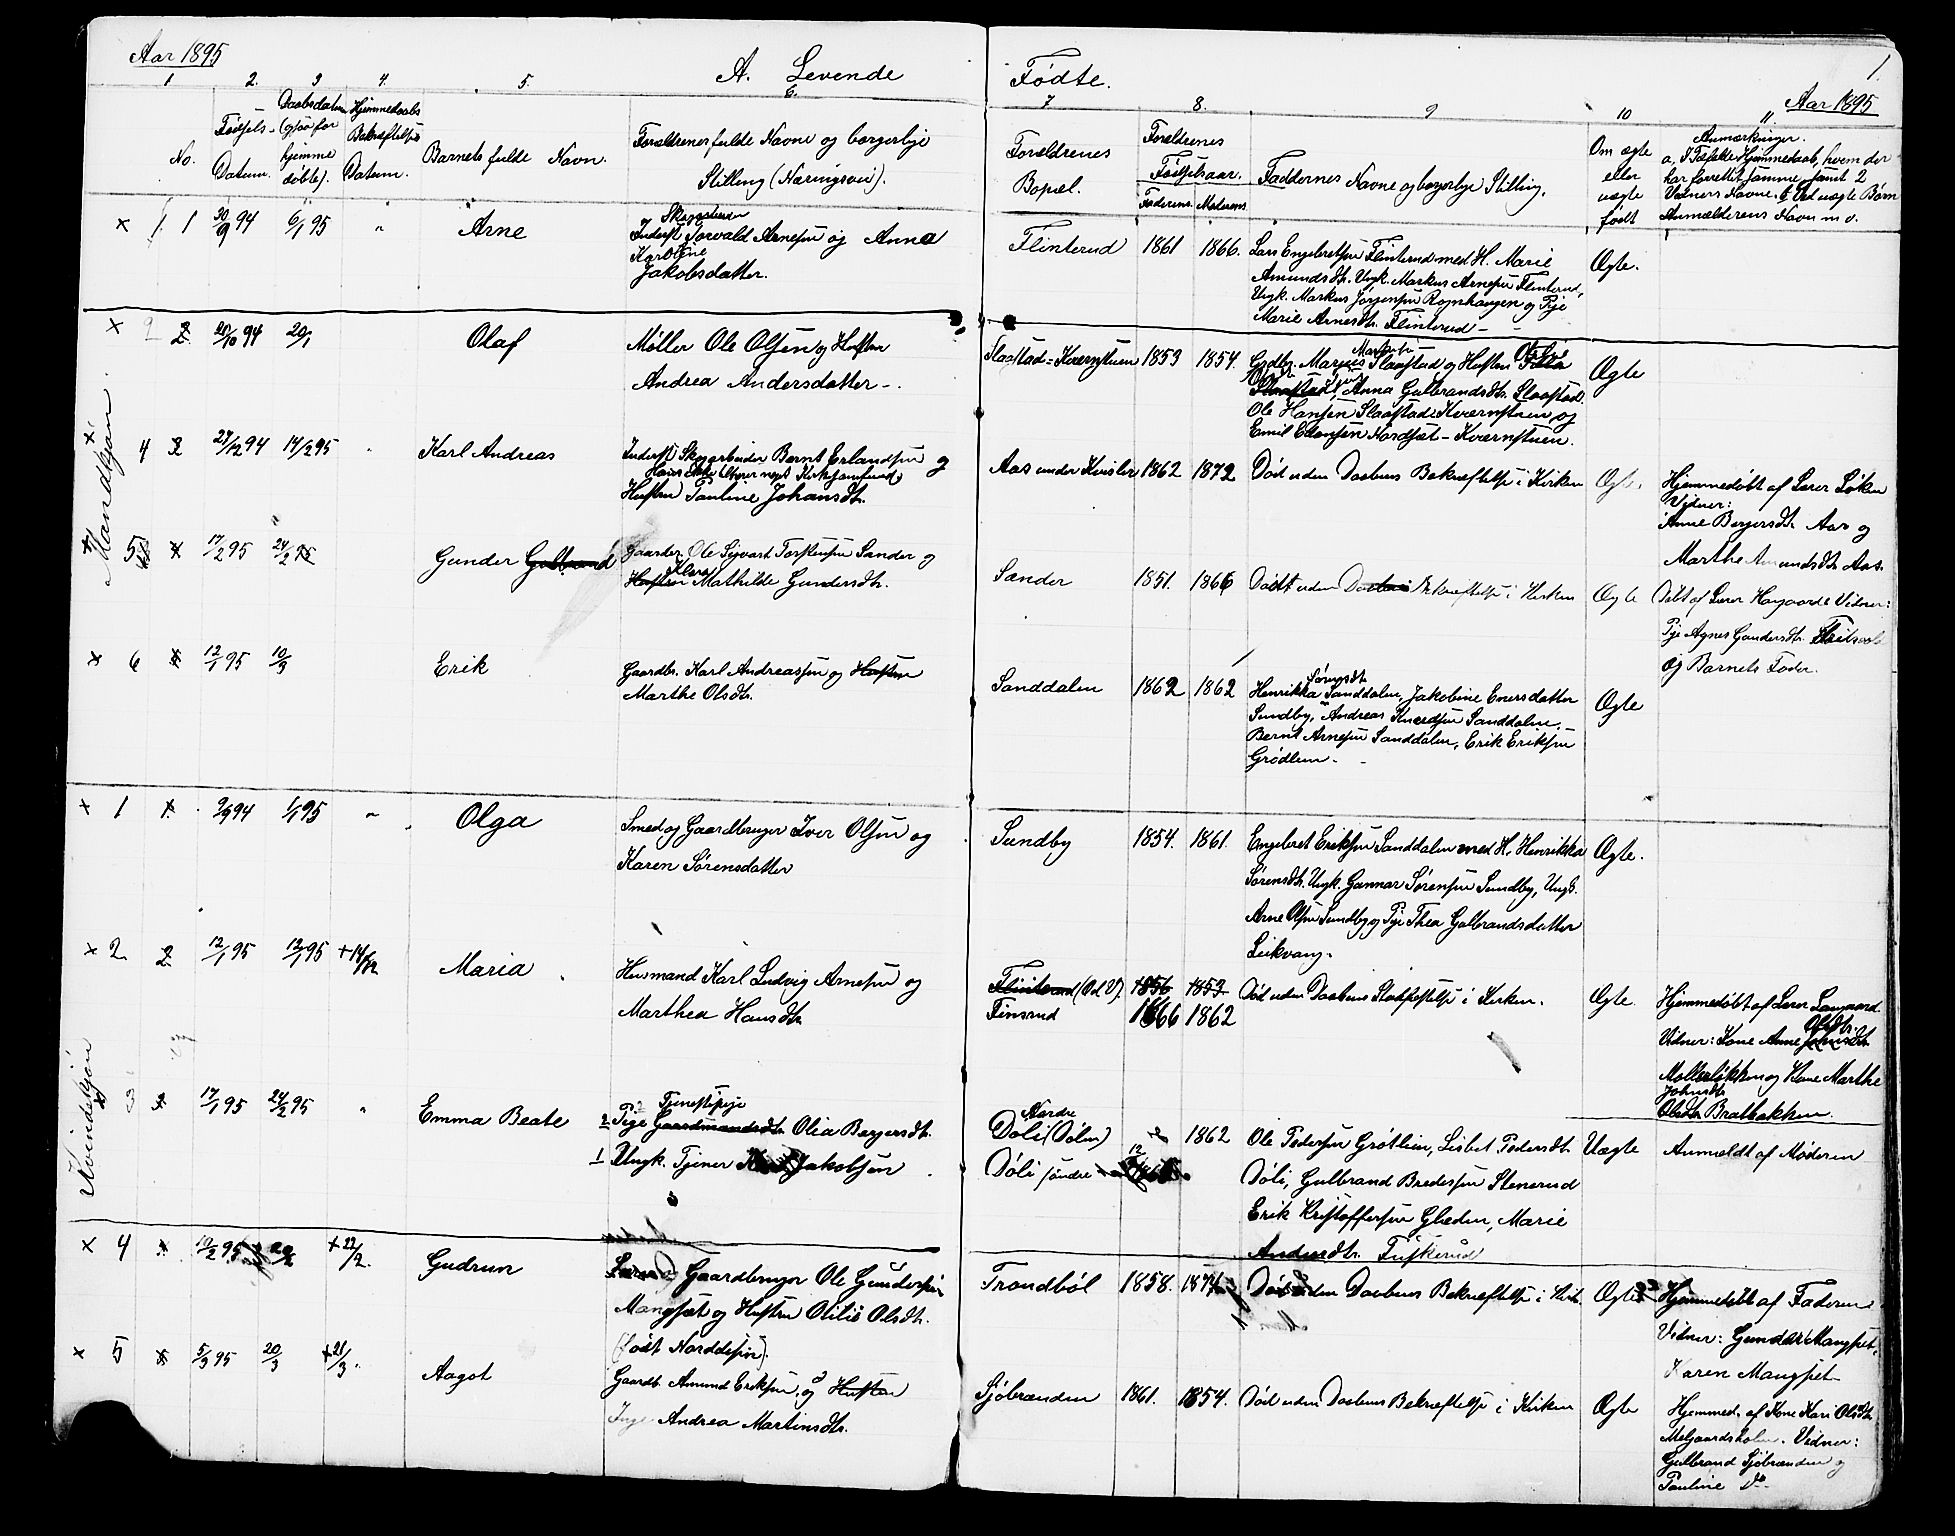 Aar 1895
A. Levende
Fødte.
1.
Aar 1895
1 2. 3 4. 5. 6. 7 8. 9 10 11.
No.
Fødsels-
Datum.
Daabsdatum
(ogsaa for
hjemme
døbte).
Hjemmedaabs
Bekræftelses
Datum.
Barnets fulde Navn.
Forældrenes fulde Navne og borgerlige
Stilling (Næringsvei).
Forældrenes
Bopæl.
Forældrenes
Fødselsaar.
Faderens Moderens
Faddernes Navne og borgerlige Stilling.
Om ægte
eller
uægte
født
Anmærkninger.
a, I Tilfælde Hjemmedaab, hvem der
har forrettet samme samt 2
Vidners Navne. b Ved uægte Børn
Anmelderens Navn m. v.
Mandkjøn.
x 1. 1 30/9 94 6/1 95 " Arne
Skogsarbeider
Inderst Torvald Arnesen og Anna
Karoline
Jakobsdatter.
Flinterud 1861 1866.
Lars Engebretsen Flinterud med H. Marie
Amundsdt. Ungk. Markus Arnesen Flinterud,
Ungk. Markus Jørgensen Rognhaugen og Pige
Marie Arnesdt. Flinterud -
Ægte.
x 2 2. 20/10 94 20/1 Olaf
Møller Ole Olsen og Hustru
Andrea Andersdatter -.
Slaastad-Kvernstuen 1853 1854.
Anna Gulbrandsdt. Slaastad.
Ole Hansen Slaastad Kvernstuen og
Emil Edensen Nordsæt - Kværnstuen.
Ægte
4 3 27/12 94 14/2 95 Karl Andreas
Inderst Skogarbeider Bernt Erlandsen og
Hustru Pauline Johansdt.
Aas under Kinsler 1862 1872
Død uden Daabens Bekræftelse i Kirken
Ægte.
Hjemmedøbt af Lærer Løken
Vidner:
Anne Bergersdt. Aas og
Marthe Amundsdt. Aas.
5 4 17/2 95 24/2 95 Gunder Gulbrand
Gaardbr. Ole Sigvart Torstensen Sander og
Klara
Hustru Mathilde Gundersdt.
Sander 1851. 1866
Død uden Daabens Bekræftelse i Kirken
Ægte
Døbt af Lærer Haugaard Vidner:
Pige Agnes Gundersdt.
og Barnets Fader.
x 6 5 12/1 95 10/3 Erik
Gaardbr. Karl Andreassen og Hustru
Marthe Olsdt.
Sanddalen 1862 1862
Sørensdt.
Henrikka Sanddalen, Jakobine Enersdatter
Sundby, Andreas Knudsen Sanddalen,
Bernt Arnesen Sanddalen, Erik Eriksen
Grødlien -
Ægte
Kvindekjøn
x 1 1. 9/9 94 1/1 95 " Olga
Smed og Gaardbruger Iver Olsen og
Karen Sørensdatter
Sundby 1854. 1861.
Engebret Eriksen Sanddalen med H. Henrikka
Sørensdt. Ungk. Gunnar Sørensen Sundby, Ungk.
Arne Olsen Sundby og Pige Thea Gulbrandsdatter
Leikvang.
Ægte.
x 2. 2. 12/1 95 12/1 95 +14/12 Maria
Husmand Karl Ludvig Arnesen og
Marthea Hansdt.
Flinterud (Od. V). 1856 1853
Finsrud 1866 1862
Død uden Daabens Stadfæstelse i Kirken.
Ægte
Hjemmedøbt af Lærer Langaard
Olsdt.
Vidner: Kone Anne Johnsdt.
Mollerløkken og Kone Marthe
Johnsdt.
Olsdt. Bratbakken.
x 3 3. 17/1 95 24/2 95 " Emma Beate
Tjenestepige
2 Pige Gaardmandsdt. Olia Bergersdt.
1 Ungk. Tjener Jakobsen
Nordre
Døli (Dølen) 1862
Døli søndre
Ole Pedersen Grøtlien, Lisbet Pedersdt.
Døli, Gulbrand Bredesen Stenerud
Erik Kristoffersen Glæden, Marie
Andersdt. Fuskerud
Uægte
Anmeldt af Moderen
x 4 4. 10/2 95 20/2 +22/2. Gudrun
Gaardbruger Ole Gundersen
Mangset og Hustru Otilie Olsdt.
(født Norddesen).
Trondbøl 1858. 1874
Død uden Daabens Bekræftelse i Kirk.
Ægte
Hjemmedøbt af Faderen
Vidner: Gunder Mangset,
Karen Mangset
x 5 5 5/3 95 20/3 +21/3. Aagot
Gaardb. Amund Eriksen og Hustru
Inge Andrea Martinsdt.
Sjøbrænden 1861. 1854.
Død uden Daabens Bekræftelse i Kirken
Ægte
Hjemmed. af Kone Kari Olsdt.
Melgaardsholm. Vidner:
Gulbrand Sjøbrænden og
Pauline Do.